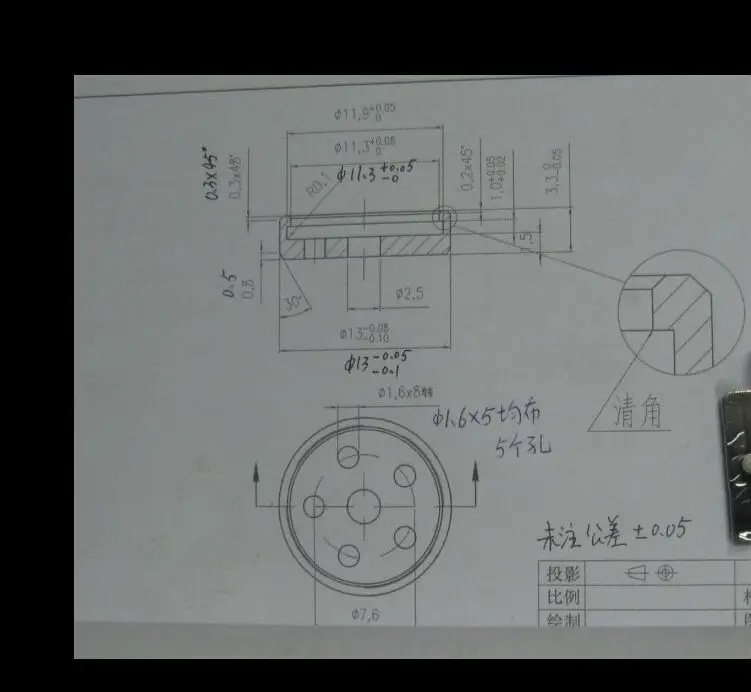 φ11,9+0.05 0
φ11,3+0.08 0
φ11.3+0.05 -0
R0.1
0.3x45°
0,3x45°
0,2x45°
1,0+0.05 +0.02
3,3-0 -0.05
1,5
0.5
0,8
30°
φ2,5
φ13-0.08 -0.10
φ13-0.05 -0.1
φ1,6x8
φ1.6x5均布
5个孔
清角
未注公差±0.05
φ7,6
投影
比例
绘制